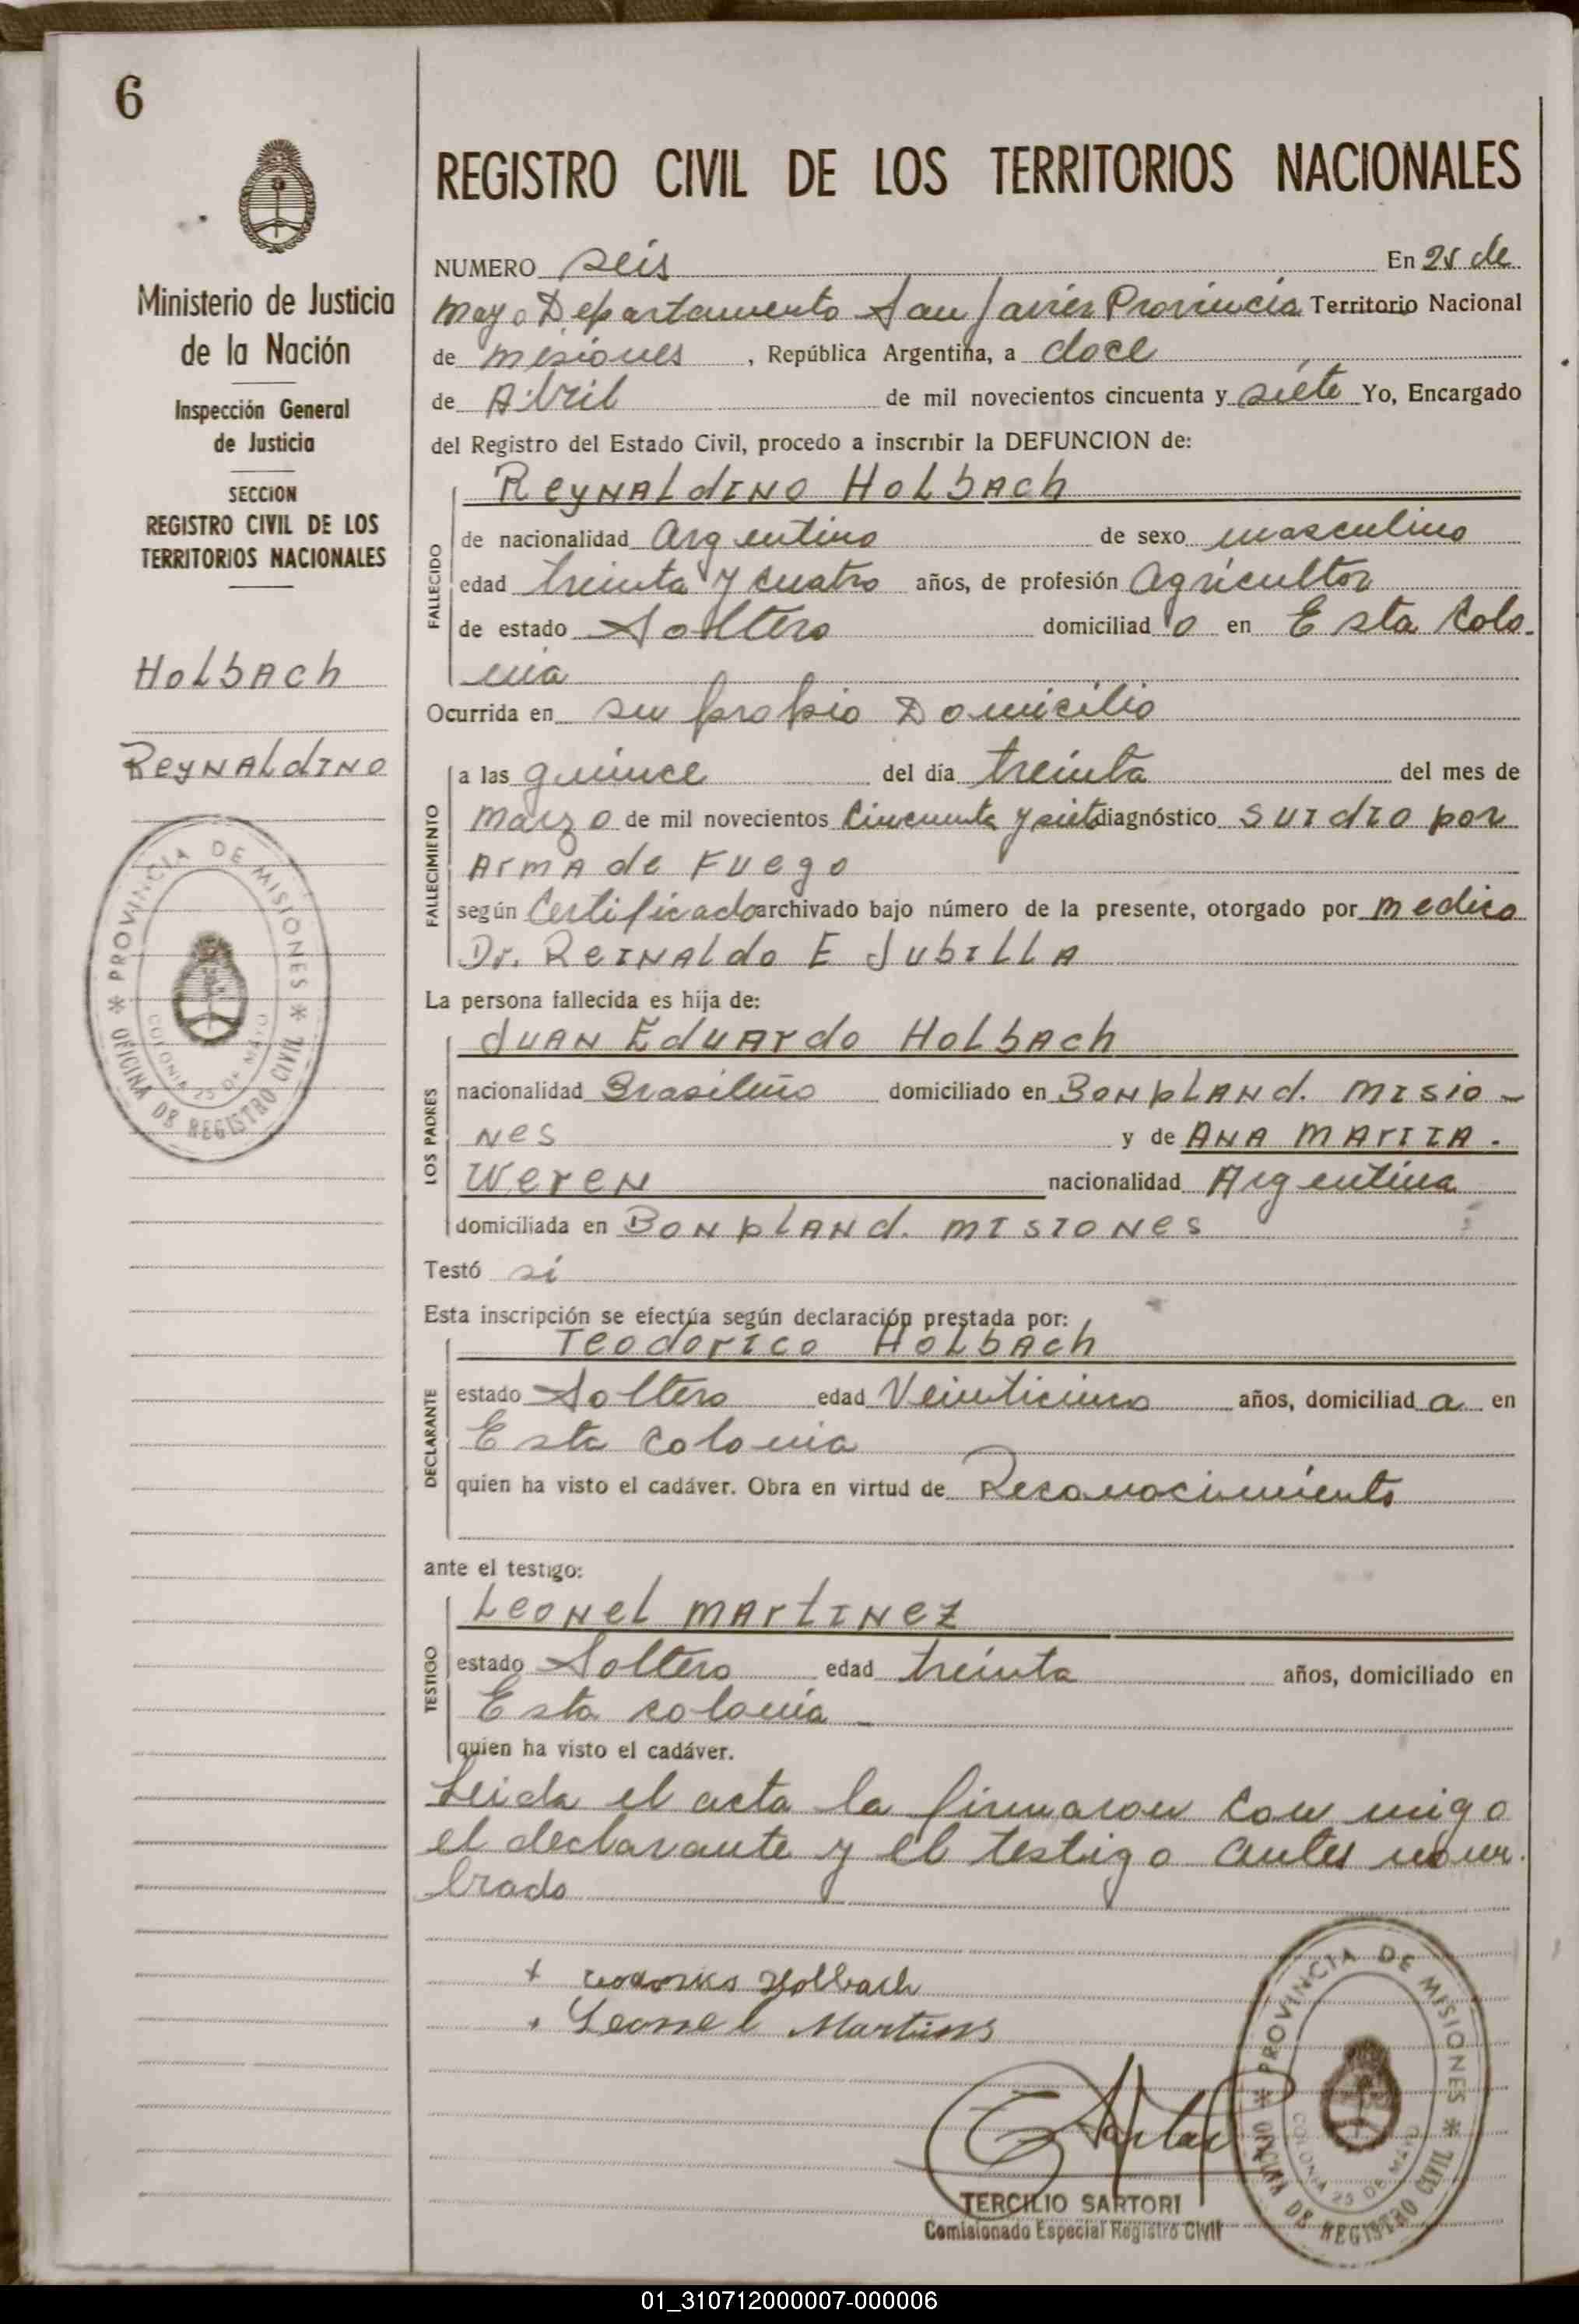 6
REGISTRO CIVIL DE LOS TERRITORIOS NACIONALES
Ministerio de Justicia
de la Nación
Inspección General
de Justicia
SECCION
REGISTRO CIVIL DE LOS
TERRITORIOS NACIONALES
Holbach
Reynaldino
PROVINCIA DE MISIONES
COLONIA 25 DE MAYO
OFICINA DE REGISTRO CIVIL
NUMERO seis En 25 de
mayo Departamento San Javier Provincia Territorio Nacional
de misiones, República Argentina, a doce
de Abril de mil novecientos cincuenta y siete Yo, Encargado
del Registro del Estado Civil, procedo a inscribir la DEFUNCION de:
Reynaldino Holbach
FALLECIDO
de nacionalidad Argentino de sexo masculino
edad treinta y cuatro años, de profesión Agricultor
de estado Soltero domiciliado en Esta Colo-
nia
Ocurrida en su propio Domicilio
FALLECIMIENTO
a las quince del día treinta del mes de
marzo de mil novecientos Cincuenta y siete diagnóstico suidio por
Arma de Fuego
según Certificado archivado bajo número de la presente, otorgado por medico
Dr. Reinaldo E Jubilla
La persona fallecida es hija de:
LOS PADRES
Juan Eduardo Holbach
nacionalidad Brasileño domiciliado en Bonpland. misio-
nes y de Ana Mariia.
Weren nacionalidad Argentina
domiciliada en Bonpland. misiones
Testó si
Esta inscripción se efectúa según declaración prestada por:
DECLARANTE
Teodorico Holbach
estado Soltero edad Veinticinco años, domiciliada en
Esta colonia
quien ha visto el cadáver. Obra en virtud de Reconocimiento
ante el testigo:
TESTIGO
Leonel Martinez
estado Soltero edad treinta años, domiciliado en
Esta colonia
quien ha visto el cadáver.
Leida el acta la firmaron con migo
el declarante y el testigo antes nom-
brado
+ Holbach
Leonel
Sartori
TERCILIO SARTORI
Comisionado Especial Registro Civil
PROVINCIA DE MISIONES
COLONIA 25 DE MAYO
OFICINA DE REGISTRO CIVIL
01_310712000007-000006